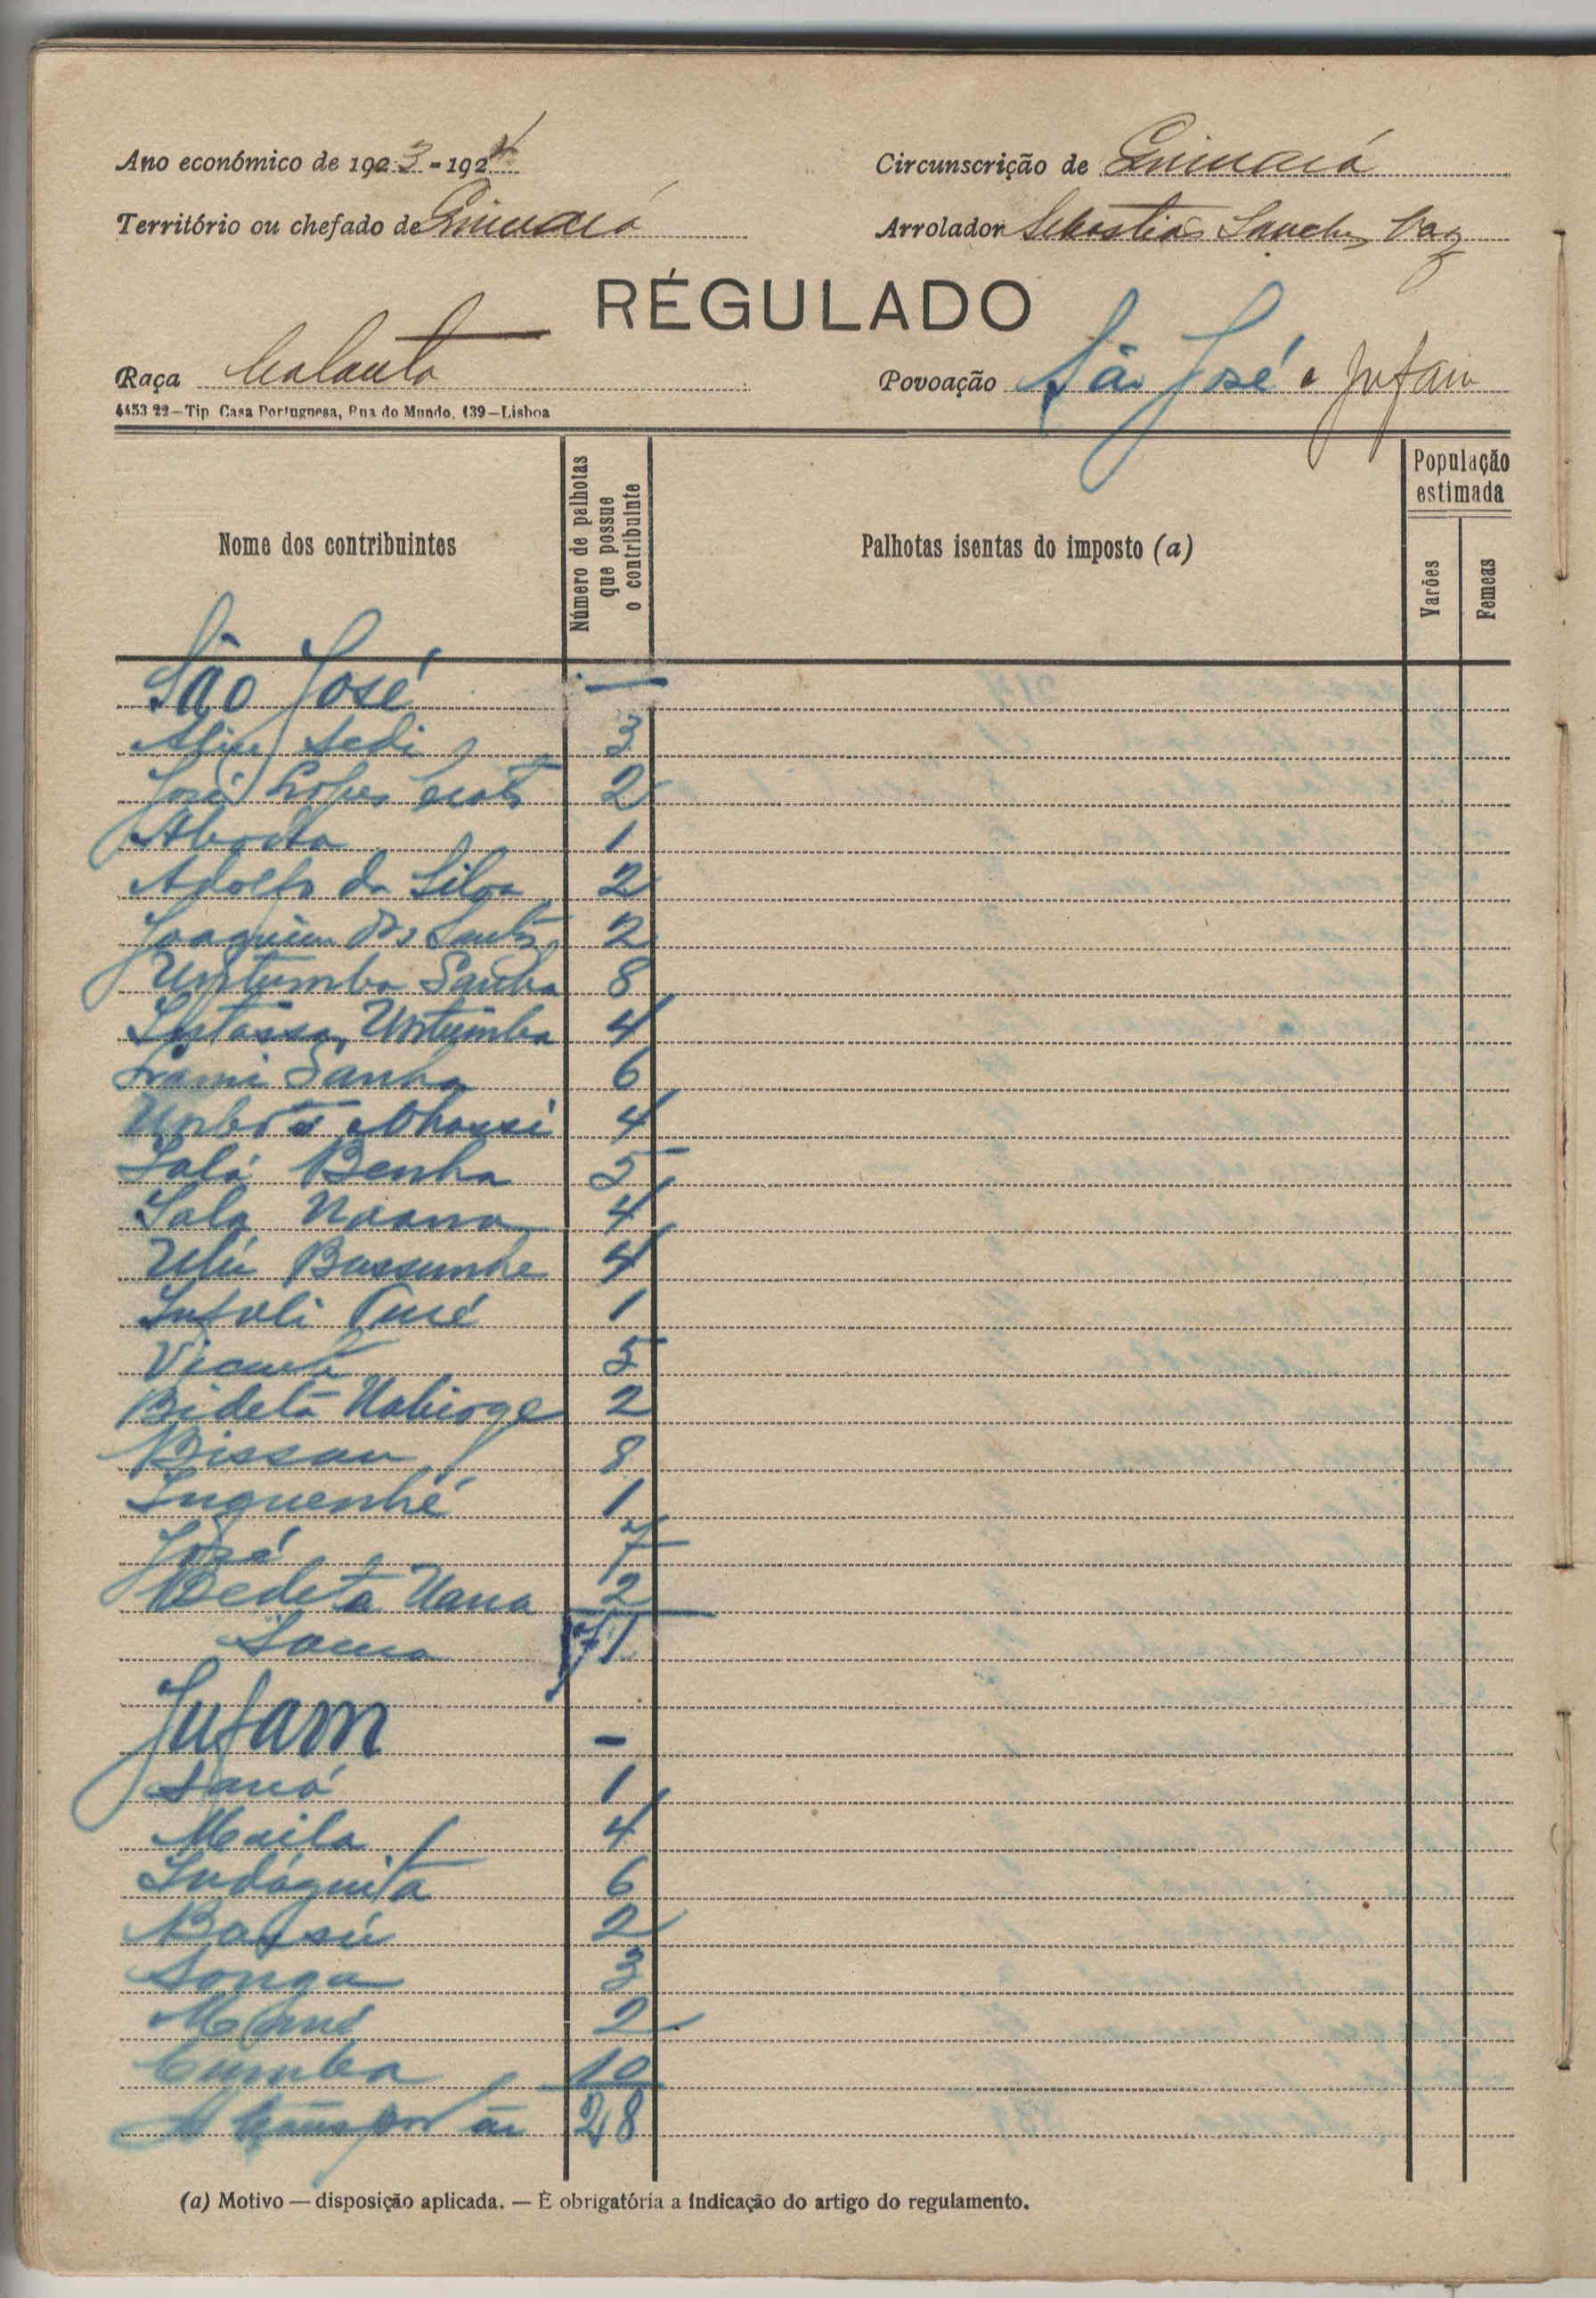 Ano económico de 1923-1924
Circunscrição de Quinará
Território ou chefado de Quinará
Arrolador Sebastião Sanches Vaz
RÉGULADO
Raça Balanta
Povoação São José e Jufam
4453 22—Tip. Casa Portuguesa, Rua do Mundo, 139—Lisboa
Nome dos contribuintes
Número de palhotas que possue o contribuinte
Palhotas isentas do imposto (a)
População estimada
Varões
Femeas
São José —
3
José Lopes 2
1
Adolfo da Silva 2
Joaquim dos Santos 2
Untumba Sanha 8
Untumba 4
Sanha 6
4
Salá Benha 5
Sala Naana 4
Bussunhe 4
1
Vicente 5
Bidetá 2
Bissau 8
Inquenhé 1
José 7
Bedeta Nana 2
Soma 71
Jufam -
1
Maila 4
6
2
Songa 3
2
Cumba 10
A transportar 28
(a) Motivo — disposição aplicada. — É obrigatória a indicação do artigo do regulamento.